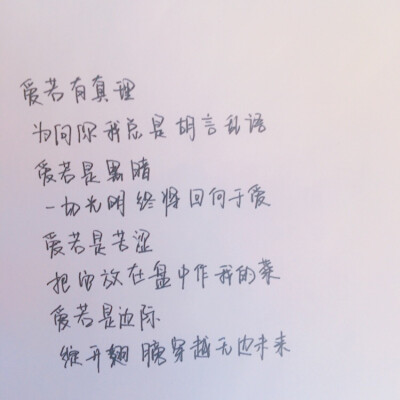 爱若有真理
为何你我总是胡言乱语
爱若是黑暗
一切光明终将回向于爱
爱若是苦涩
把留放在盘中作我的菜
爱若是边际
绽开翅膀穿越无边未来